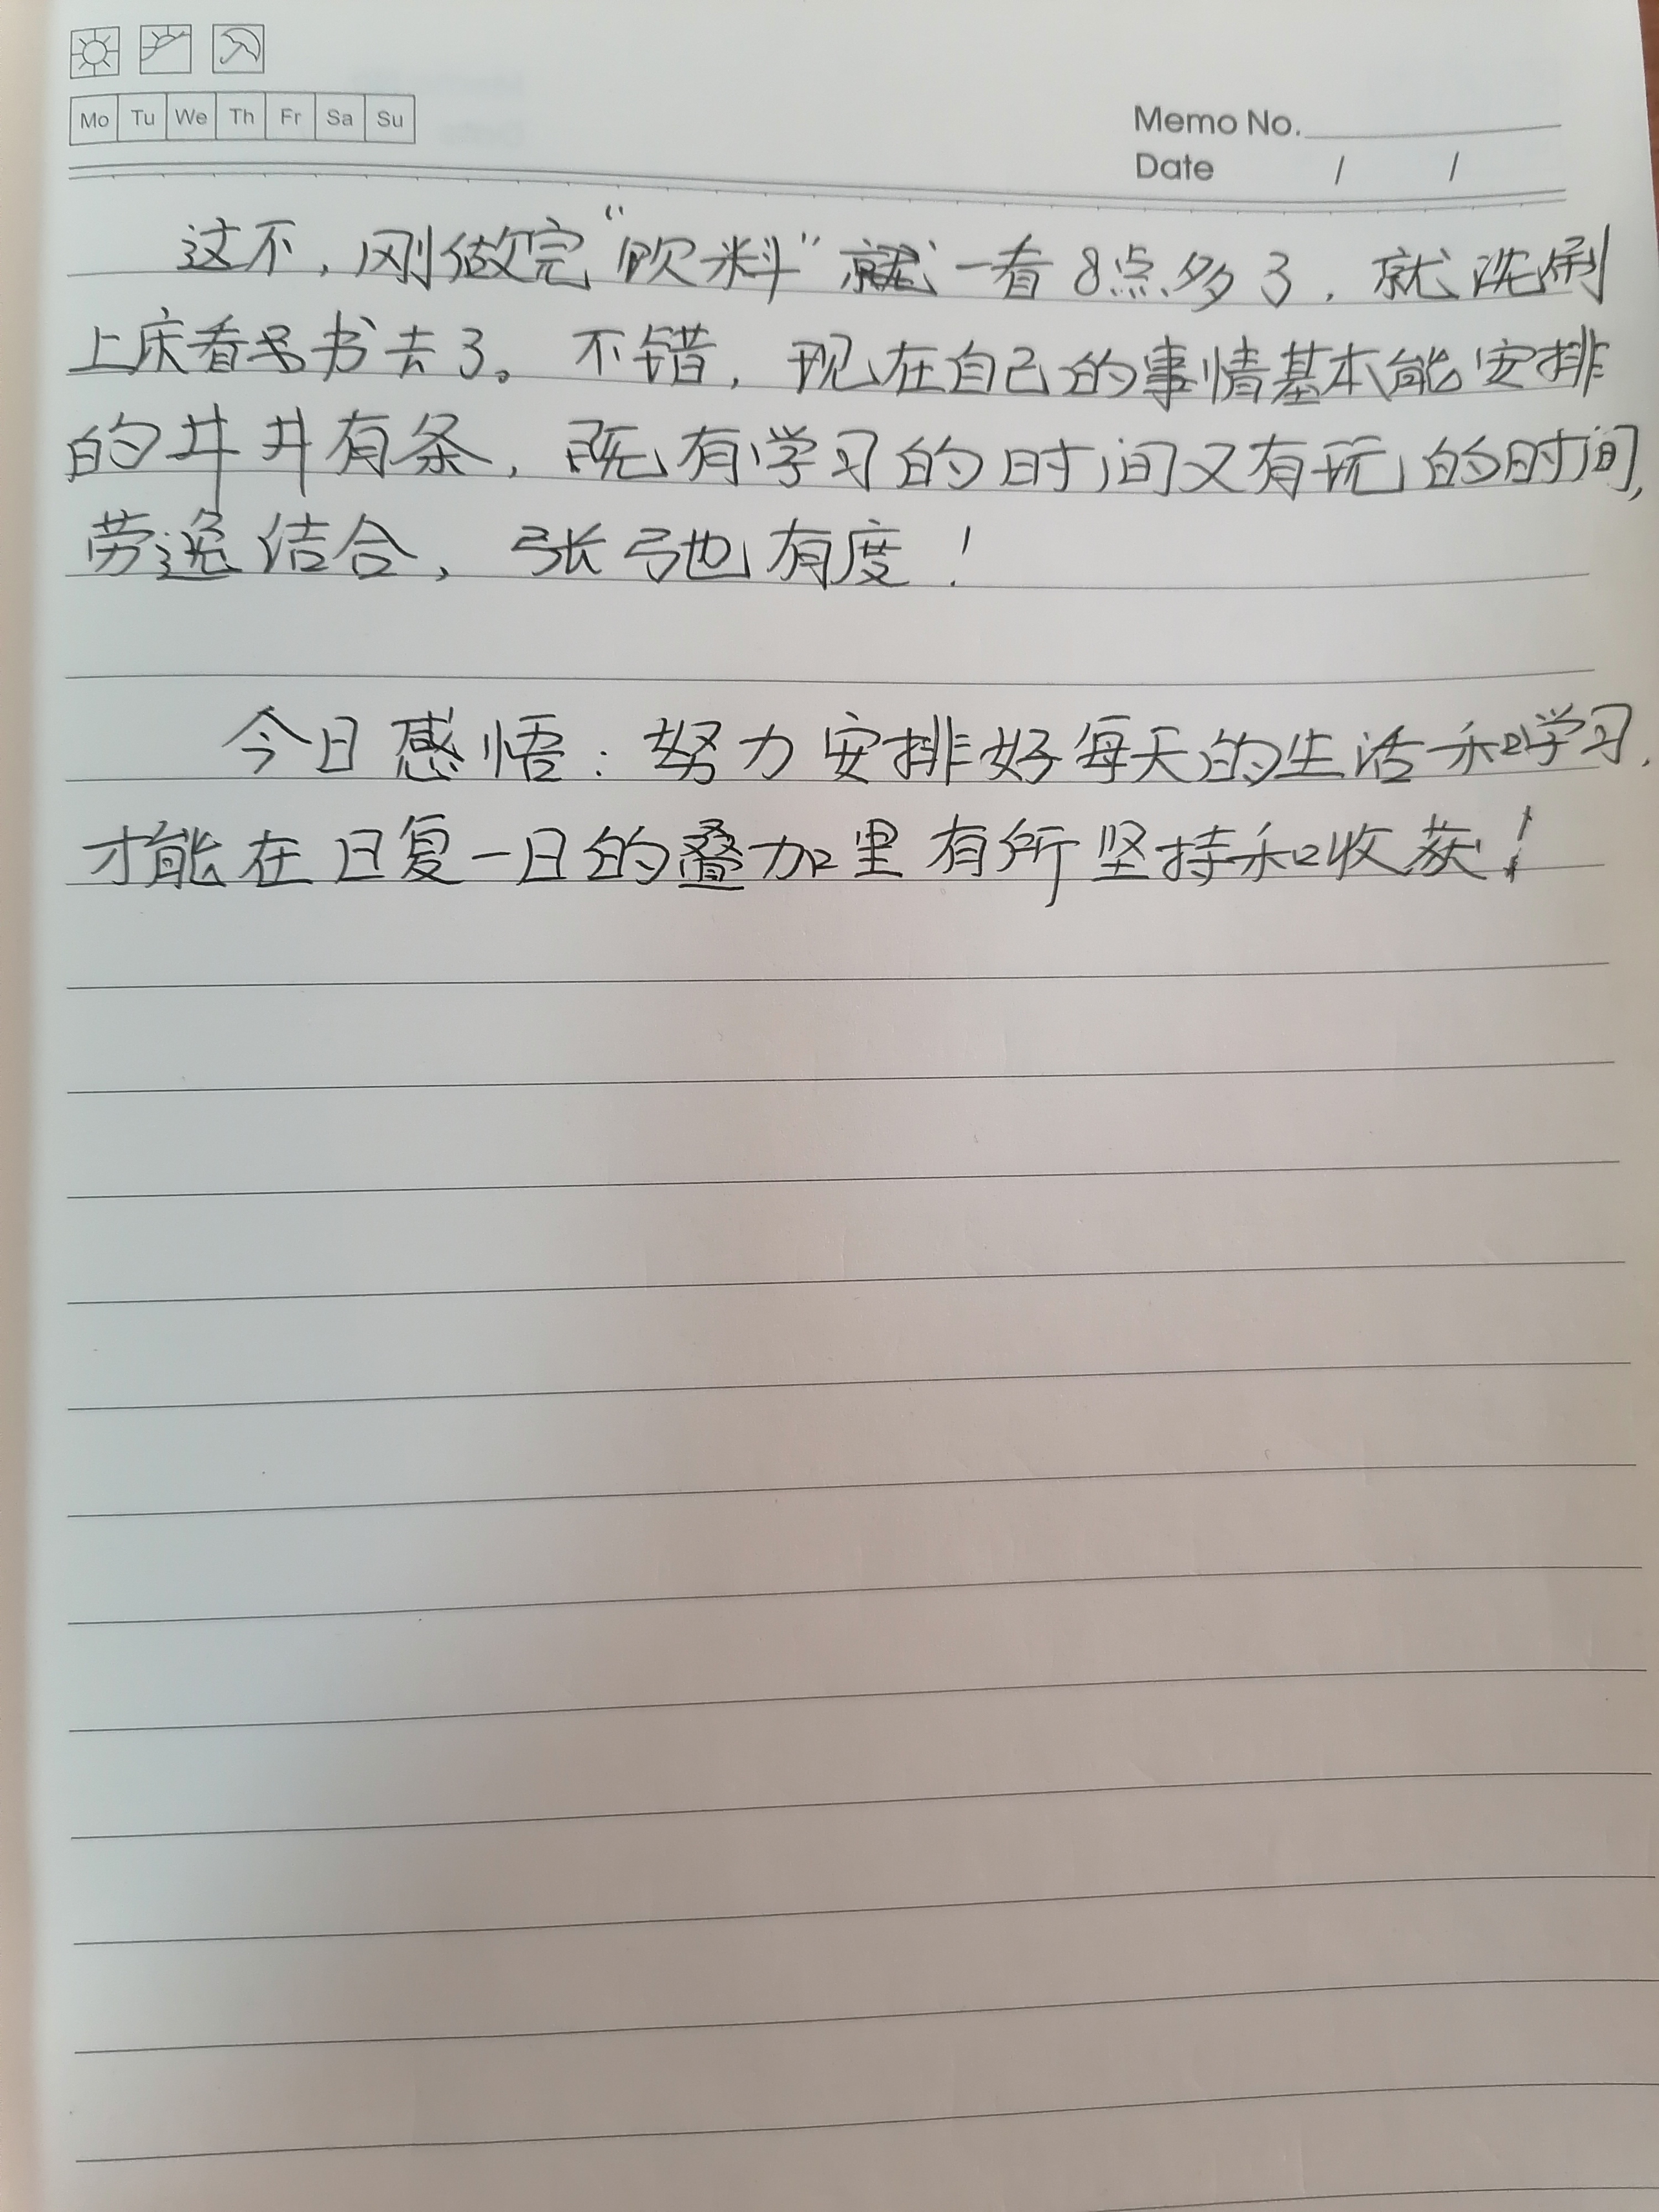 Mo Tu We Th Fr Sa Su
Memo No.
Date / /
这不，刚做完“饮料”就一看8点多了，就洗刷
上床看书去了。不错，现在自己的事情基本能安排
的井井有条，既有学习的时间又有玩的时间，
劳逸结合，张弛有度！
今日感悟：努力安排好每天的生活和学习，
才能在日复一日的叠加里有所坚持和收获！